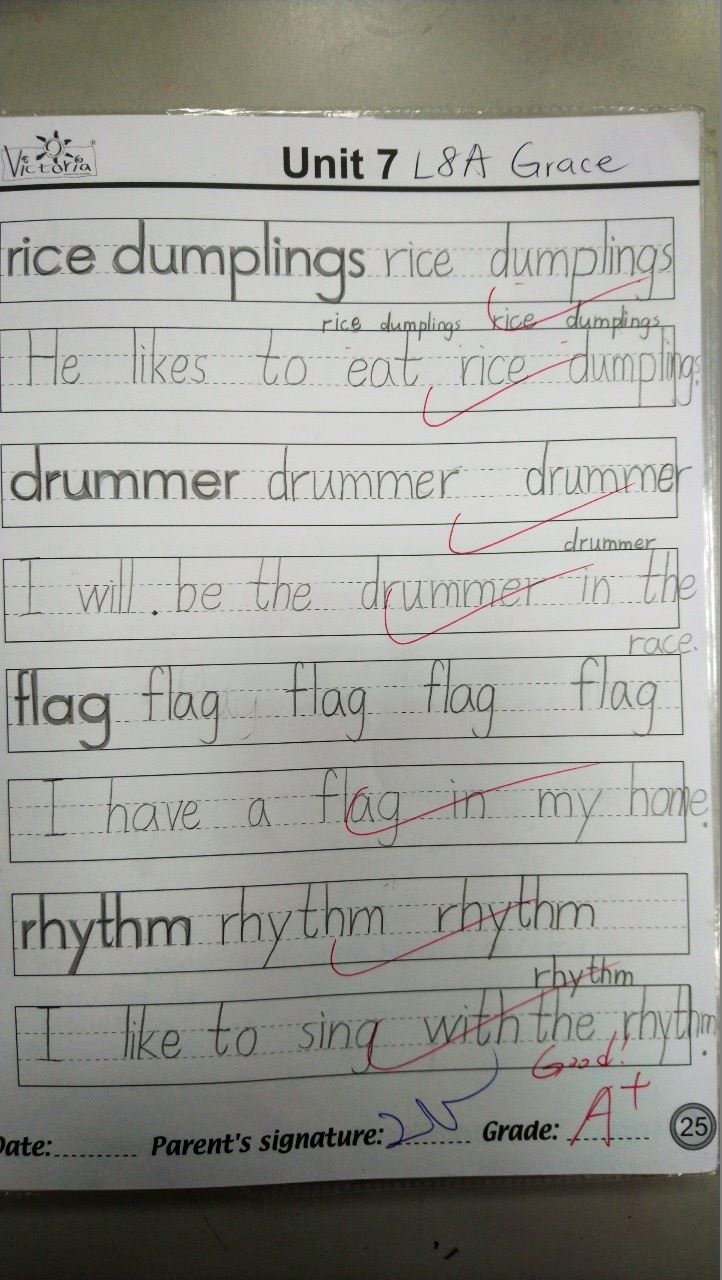 Victoria
Unit 7 L8A Grace
rice dumplings rice dumplings
rice dumplings rice dumplings
He likes to eat rice dumplings.
drummer drummer drummer
drummer
I will. be the drummer in the
race.
flag flag flag flag flag
I have a flag in my home.
rhythm rhythm rhythm
rhythm
I like to sing with the rhythm.
Good!
Date: Parent's signature: Grade: A+ 25